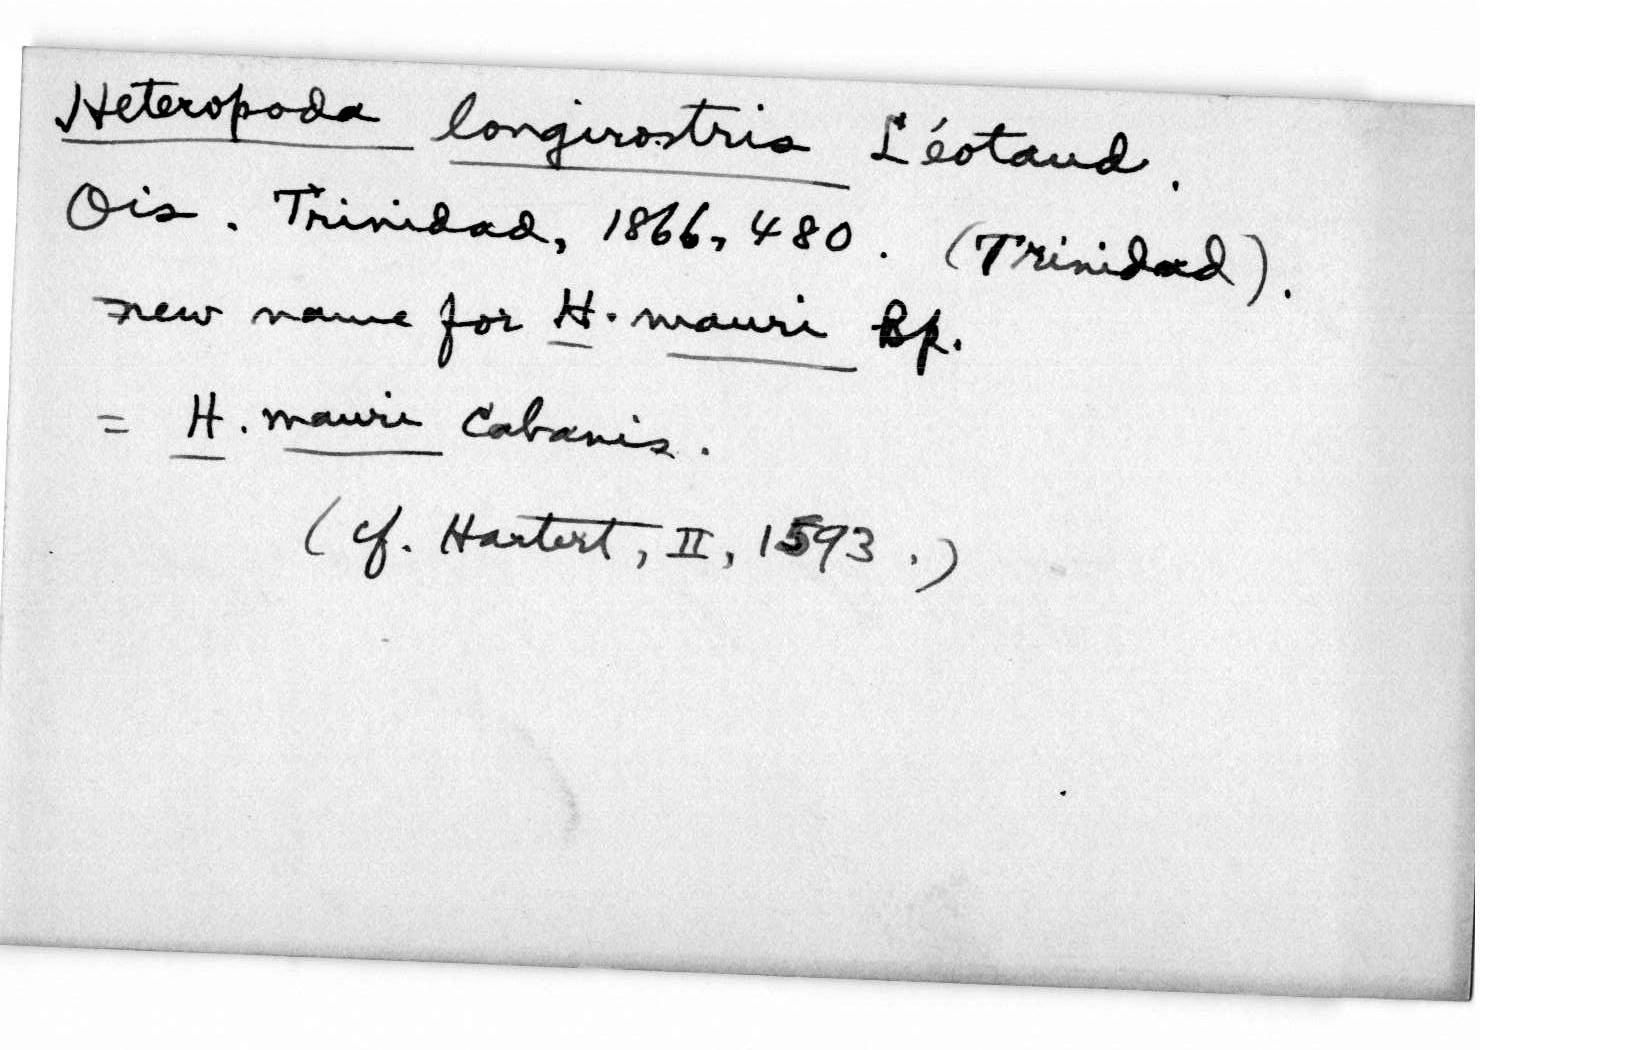 Heteropoda longirostris Léotaud.
Ois. Trinidad, 1866, 480. (Trinidad).
new name for H. mauri Bp.
= H. mauri Cabanis.
(cf. Hartert, II, 1593.)